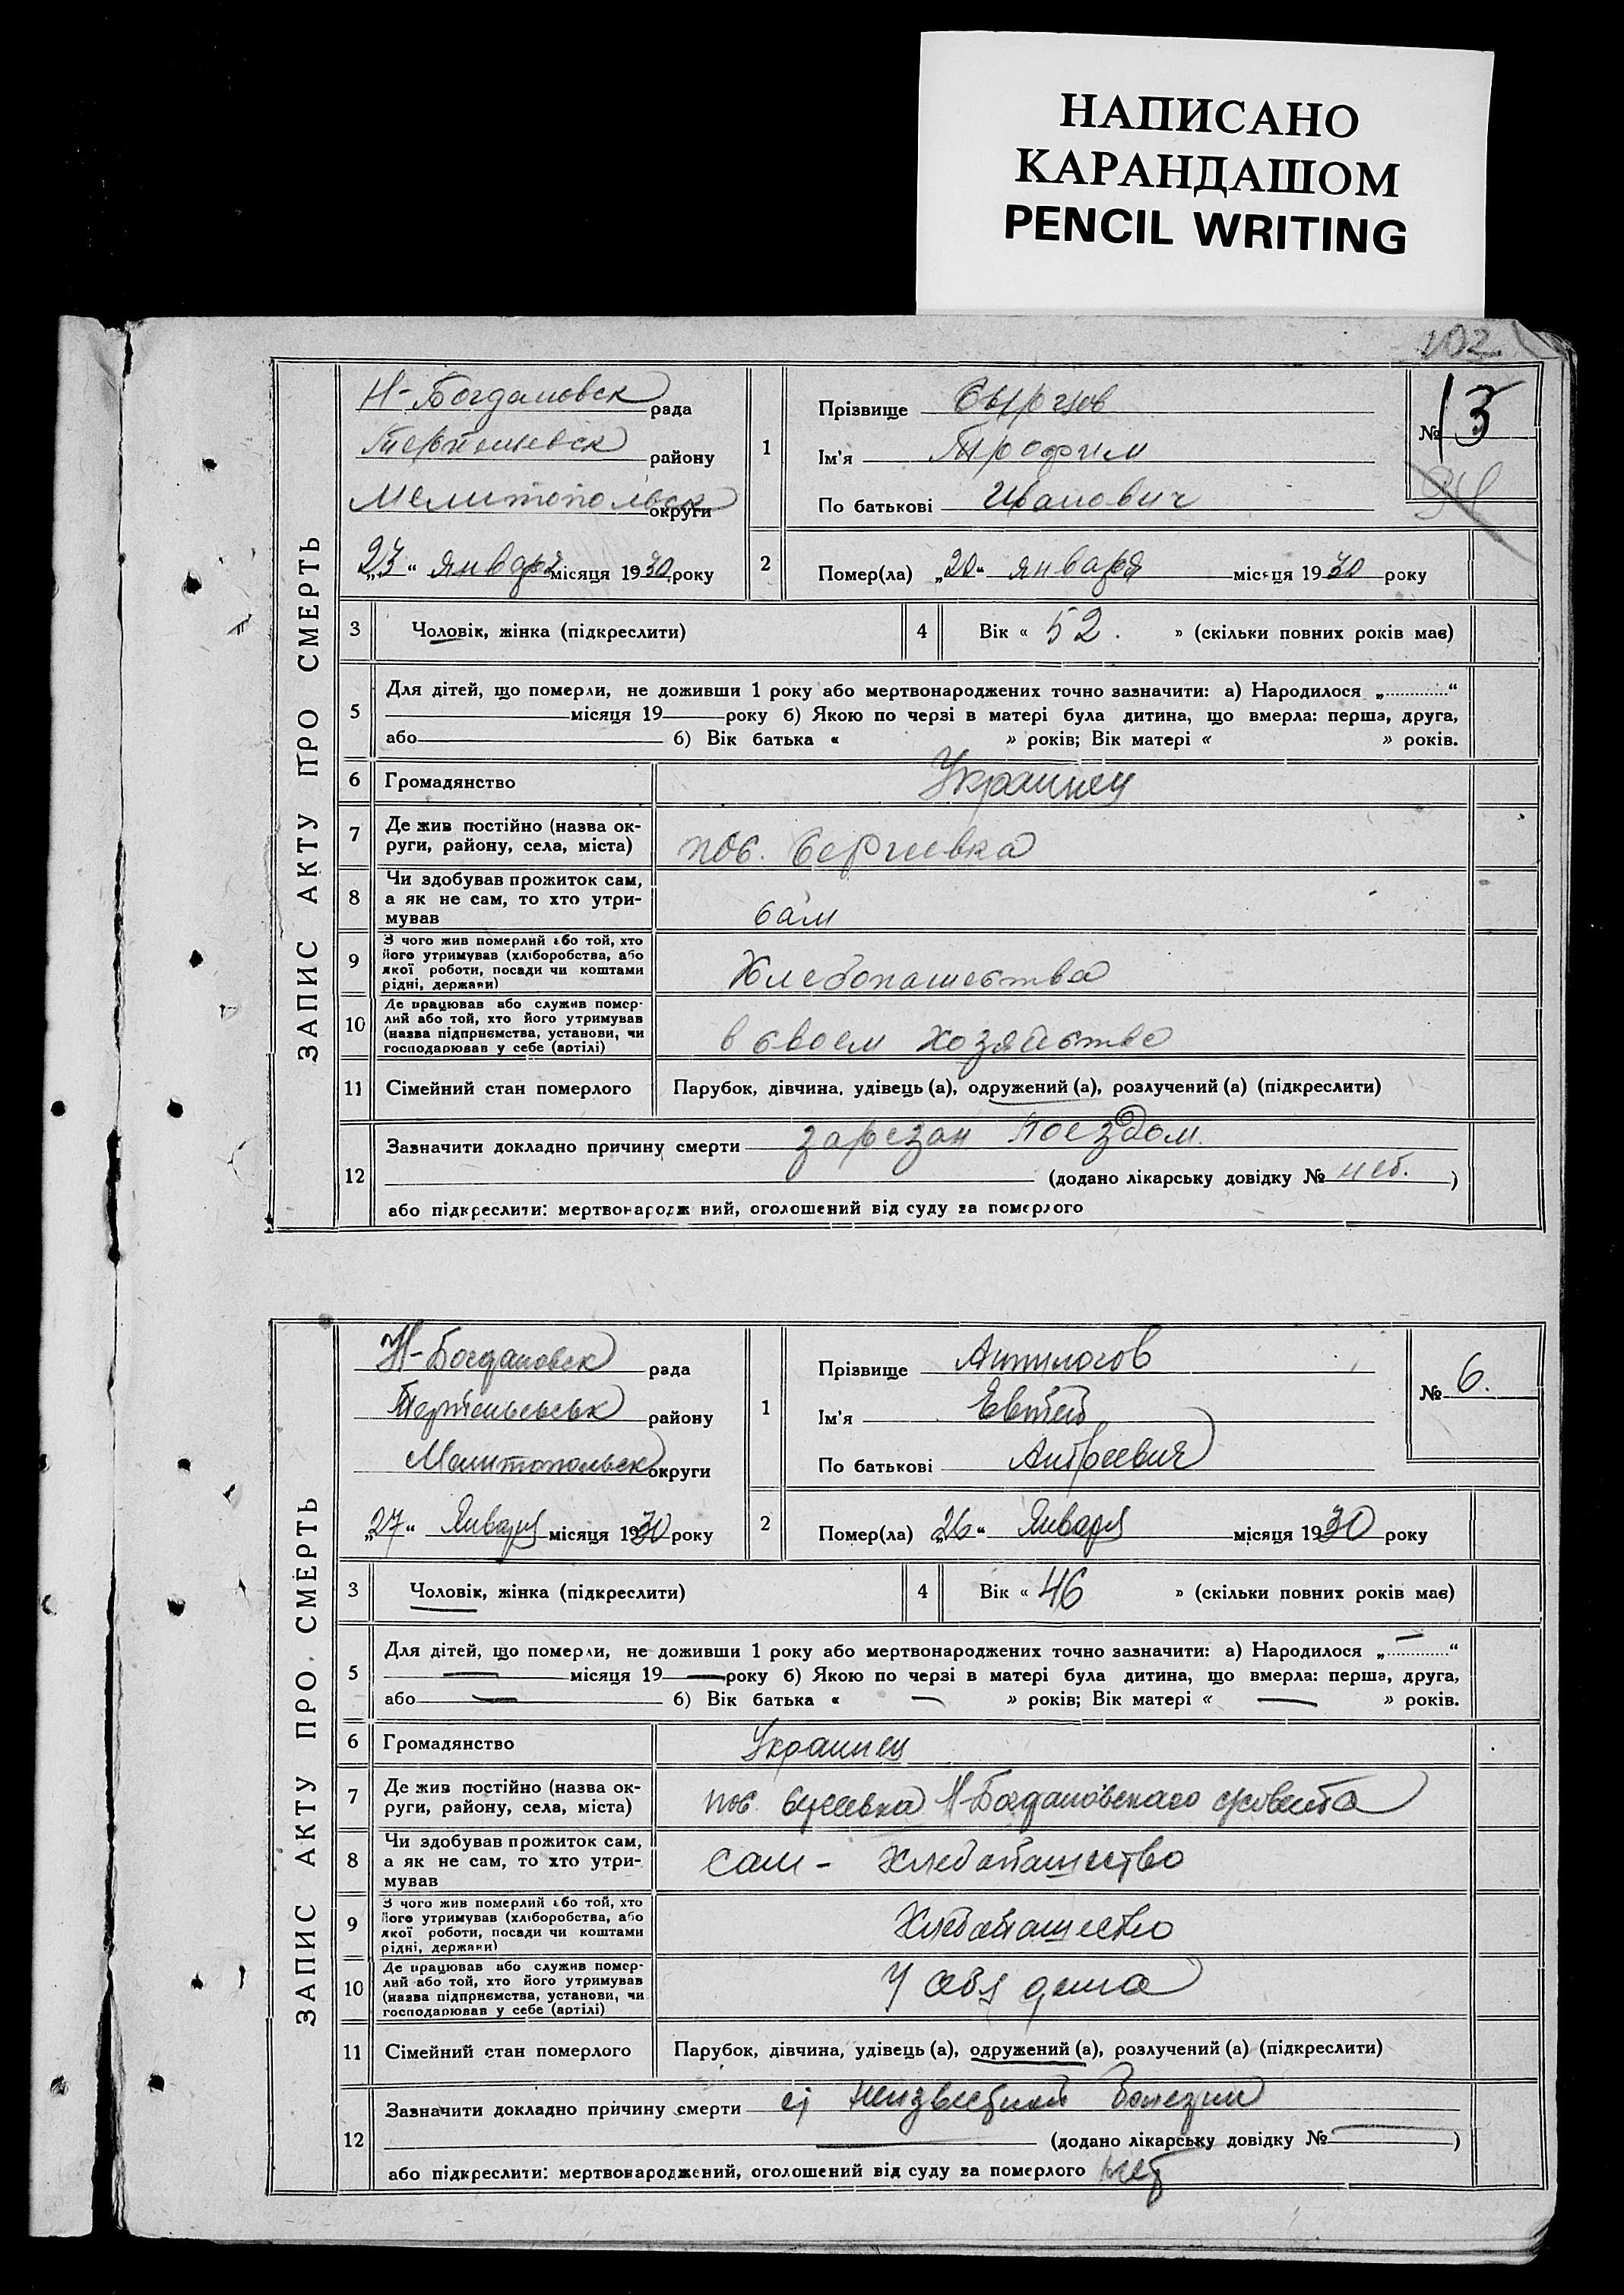 НАПИСАНО
КАРАНДАШОМ
PENCIL WRITING
102
ЗАПИС АКТУ ПРО СМЕРТЬ
Н-Богдановск рада
района
Мелитопольск округи
„23“ января місяця 1930 року
1
Прізвище
Ім'я Трофим
По батькові Иванович
№ 13
2
Помер(ла) „20“ января місяця 1930 року
3 Чоловік, жінка (підкреслити)
4 Вік « 52. » (скільки повних років має)
5 Для дітей, що померли, не доживши 1 року або мертвонароджених точно зазначити: а) Народилося „ “
місяця 19 року б) Якою по черзі в матері була дитина, що вмерла: перша, друга,
або б) Вік батька « » років; Вік матері « » років.
6 Громадянство Украинец
7 Де жив постійно (назва ок-
руги, району, села, міста) пос. Сергиевка
8 Чи здобував прожиток сам,
а як не сам, то хто утри-
мував сам
9 З чого жив померлий або той, хто
його утримував (хліборобства, або
якої роботи, посади чи коштами
рідні, держави) Хлебопашества
10 Де працював або служив помер-
лий або той, хто його утримував
(назва підприємства, установи, чи
господарював у себе (артілі) в своем хозяйстве
11 Сімейний стан померлого Парубок, дівчина, удівець (а), одружений (а), розлучений (а) (підкреслити)
12 Зазначити докладно причину смерти зарезан поездом.
(додано лікарську довідку № нет. )
або підкреслити: мертвонародж ний, оголошений від суду за померлого
ЗАПИС АКТУ ПРО СМЕРТЬ
Н-Богдановск рада
району
Мелитопольск округи
„27“ Января місяця 1930 року
1
Прізвище
Ім'я Евтей
По батькові
№ 6.
2
Помер(ла) „26“ Января місяця 1930 року
3 Чоловік, жінка (підкреслити)
4 Вік « 46 » (скільки повних років має)
5 Для дітей, що померли, не доживши 1 року або мертвонароджених точно зазначити: а) Народилося „ — “
— місяця 19 — року б) Якою по черзі в матері була дитина, що вмерла: перша, друга,
або — б) Вік батька « — » років; Вік матері « — » років.
6 Громадянство Украинец
7 Де жив постійно (назва ок-
руги, району, села, міста) пос. Н-Богдановскаго
8 Чи здобував прожиток сам,
а як не сам, то хто утри-
мував сам - Хлебопашество
9 З чого жив померлий або той, хто
його утримував (хліборобства, або
якої роботи, посади чи коштами
рідні, держави) Хлебопашество
10 Де працював або служив помер-
лий або той, хто його утримував
(назва підприємства, установи, чи
господарював у себе (артілі) У себя дома
11 Сімейний стан померлого Парубок, дівчина, удівець (а), одружений (а), розлучений (а) (підкреслити)
12 Зазначити докладно причину смерти от неизвестной болезни
(додано лікарську довідку № — )
або підкреслити: мертвонароджений, оголошений від суду за померлого нет